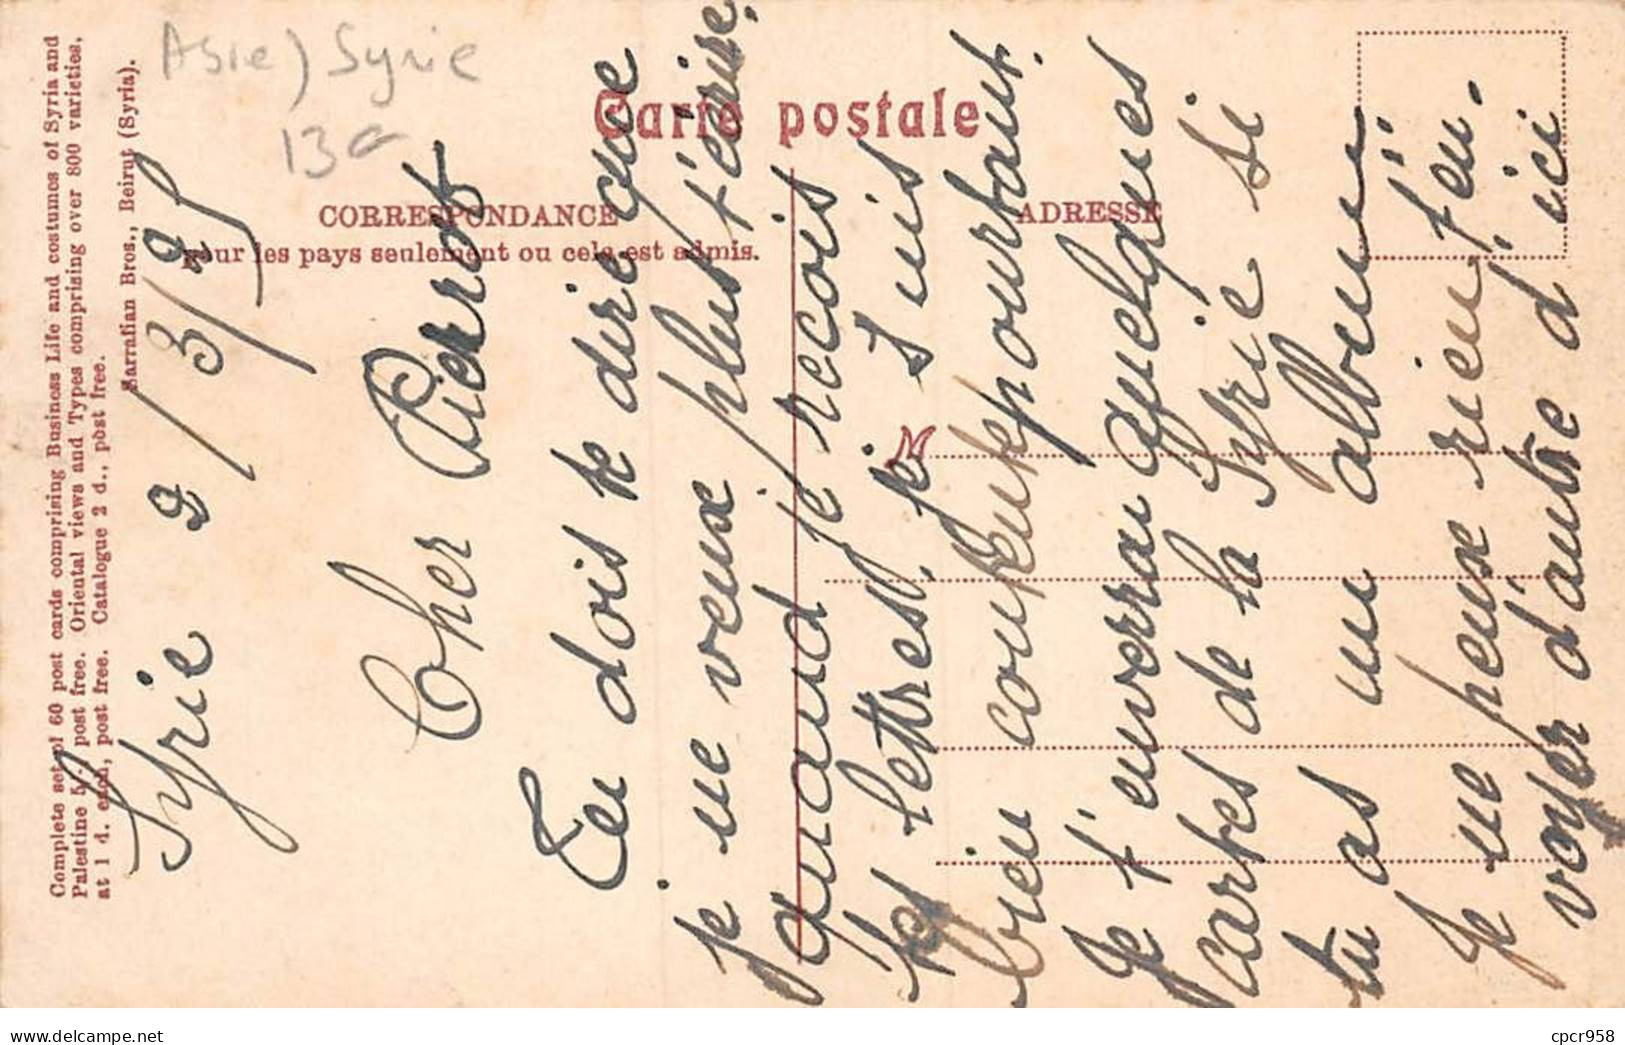 Asie) Syrie
13e
Carte postale
CORRESPONDANCE
pour les pays seulement ou cela est admis.
ADRESSE
M
Complete set of 60 post cards comprising Business Life and costumes of Syria and
Palestine 5/- post free. Oriental views and Types comprising over 800 varieties,
at 1 d. each, post free. Catalogue 2 d., post free.
Sarrafian Bros., Beirut (Syria).
Syrie 2/3/25
Cher Pierrot
Tu dois te dire que
je ne veux plus t'écrire.
quand je recois
tes lettres, je suis
bien contente pourtant.
Je t'enverrai quelques
cartes de la Syrie si
tu as un album
Je ne peux rien t'en.
voyer d'autre d'ici
cpcr958